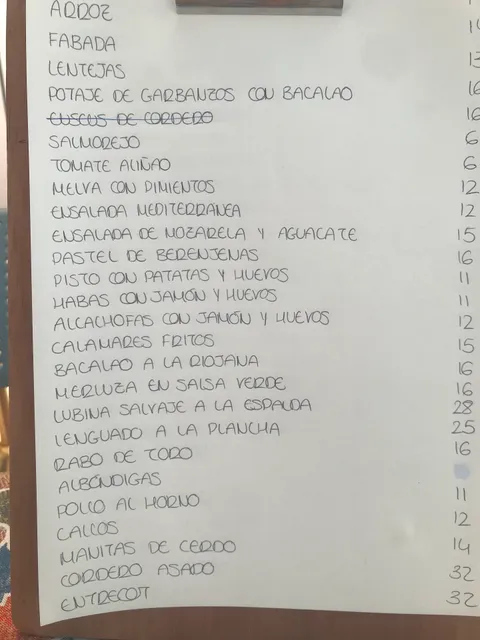 ARROZ
FABADA 14
LENTEJAS 13
POTAJE DE GARBANZOS CON BACALAO 16
CUSCUS DE CORDERO 16
SALMOREJO 6
TOMATE ALIÑAO 6
MELVA CON PIMIENTOS 12
ENSALADA MEDITERRANEA 12
ENSALADA DE MOZARELA Y AGUACATE 15
PASTEL DE BERENJENAS 16
PISTO CON PATATAS Y HUEVOS 11
HABAS CON JAMÓN Y HUEVOS 11
ALCACHOFAS CON JAMÓN Y HUEVOS 12
CALAMARES FRITOS 15
BACALAO A LA RIOJANA 16
MERLUZA EN SALSA VERDE 16
LUBINA SALVAJE A LA ESPALDA 28
LENGUADO A LA PLANCHA 25
RABO DE TORO 16
ALBÓNDIGAS
POLLO AL HORNO 11
CALLOS 12
MANITAS DE CERDO 14
CORDERO ASADO 32
ENTRECOT 32